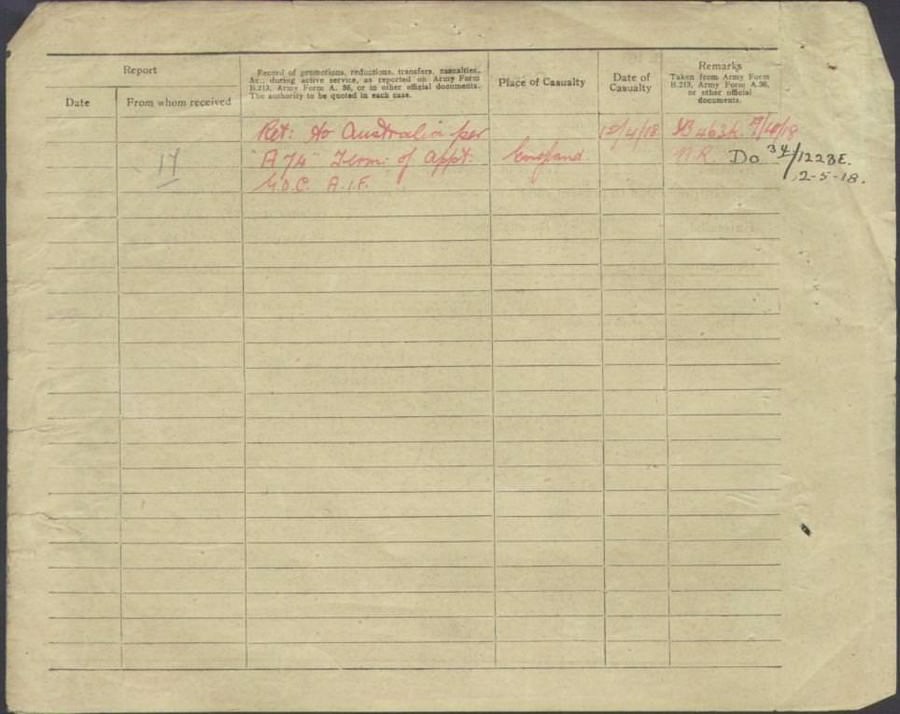 Report
Date
From whom received
Record of promotions, reductions, transfers, casualties,
&c., during active service, as reported on Army Form
B.213, Army Form A. 36, or in other official documents.
The authority to be quoted in each case.
Place of Casualty
Date of
Casualty
Remarks
Taken from Army Form
B.213, Army Form A.36,
or other official
documents.
Ret: to Australia per
"A74" Term: of Appt:
G.O.C. A.I.F.
England
/4/18
17
Do 34/1223E.
2-5-18.